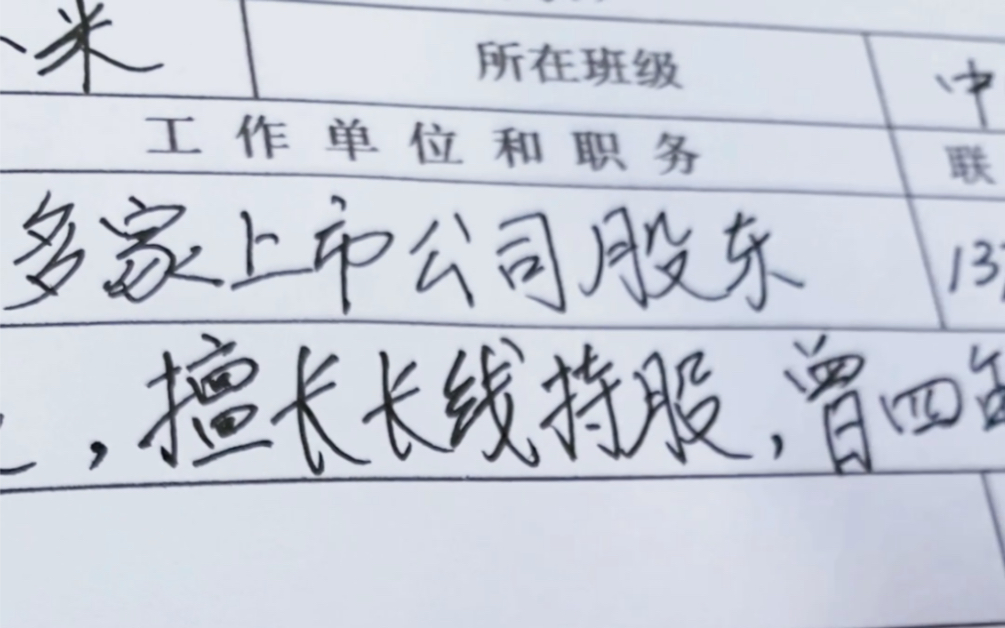 米 所在班级 中
工作单位和职务 联
多家上市公司股东 13
，擅长长线持股，曾四年